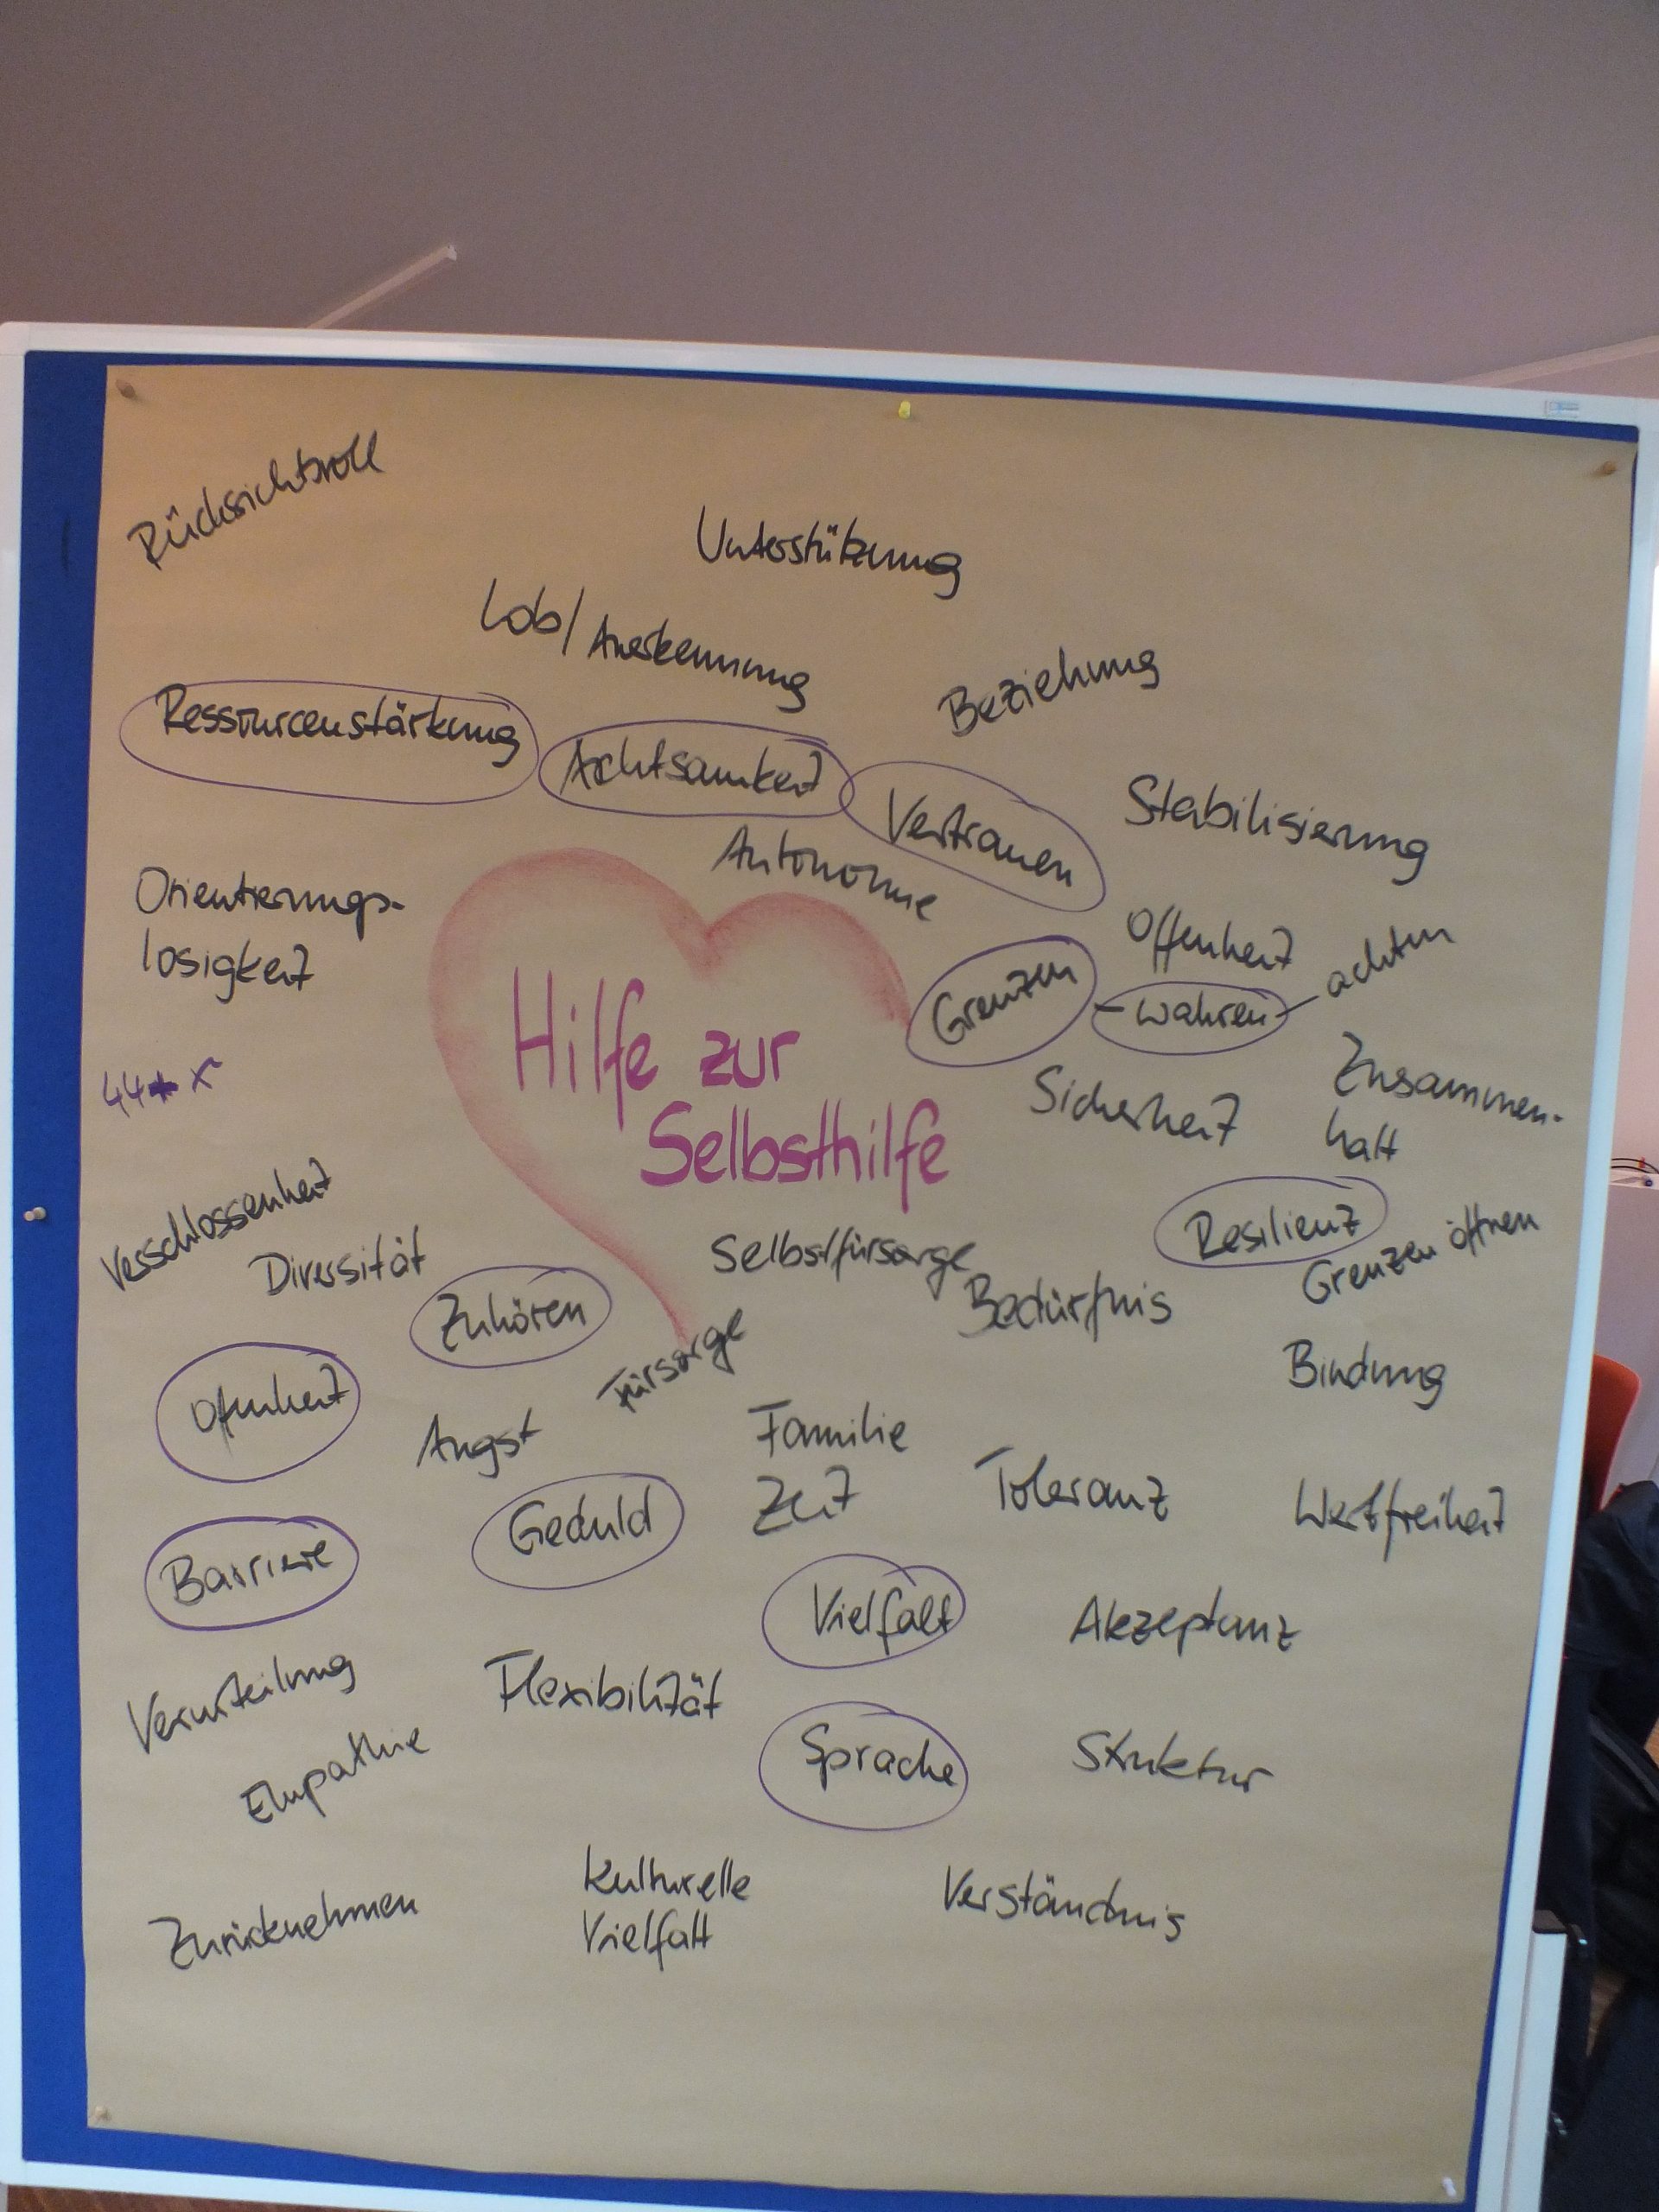 Rücksichtsvoll
Unterstützung
Lob/Anerkennung
Beziehung
Ressourcenstärkung
Achtsamkeit
Vertrauen
Stabilisierung
Autonomie
Orientierungs-
losigkeit
Offenheit
Grenzen - wahren - achten
Hilfe zur
Selbsthilfe
Sicherheit
Zusammen-
halt
44 x
Verschlossenheit
Diversität
Selbstfürsorge
Resilienz
Grenzen öffnen
Zuhören
Bedürfnis
Fürsorge
Bindung
Offenheit
Angst
Familie
Zeit
Toleranz
Wertfreiheit
Barriere
Geduld
Vielfalt
Akzeptanz
Verurteilung
Flexibilität
Empathie
Sprache
Struktur
Zurücknehmen
Kulturelle
Vielfalt
Verständnis